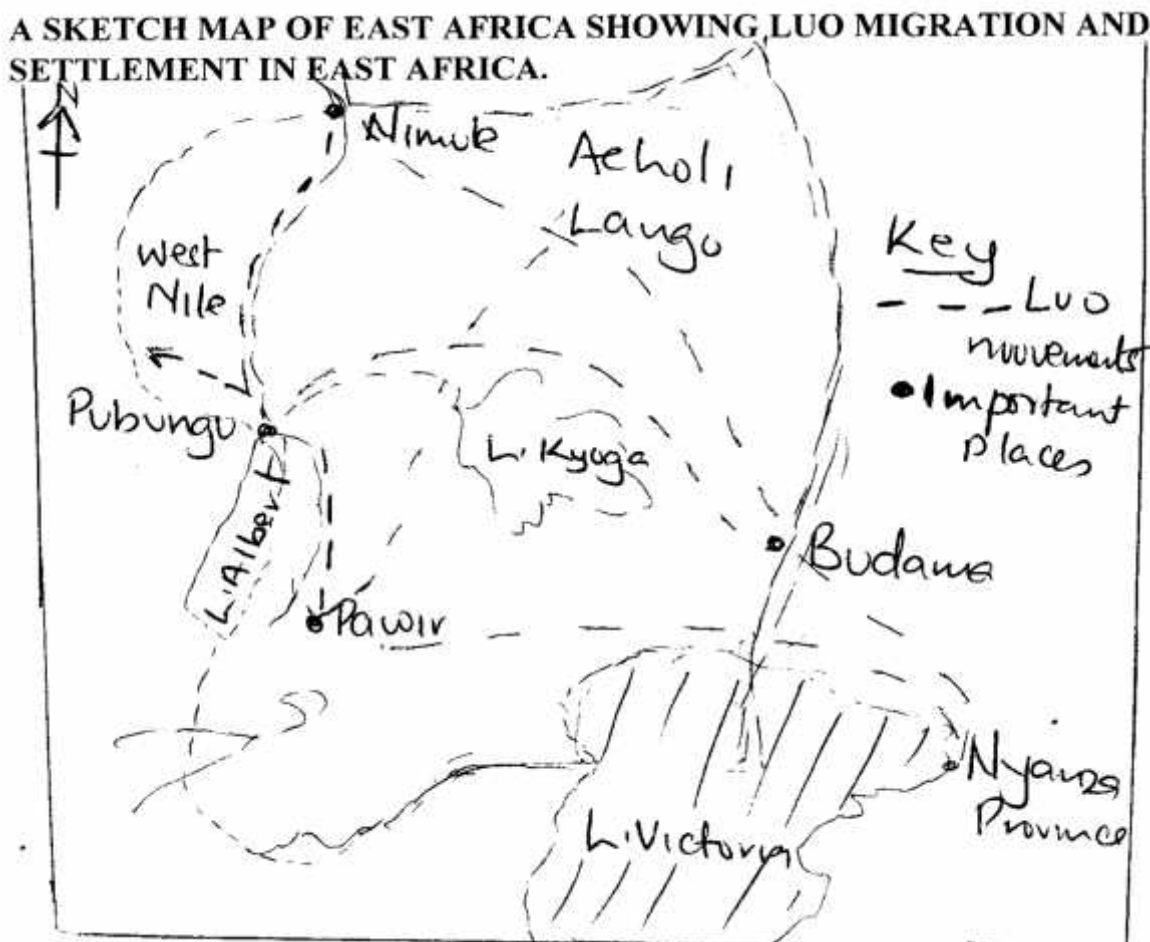 A SKETCH MAP OF EAST AFRICA SHOWING LUO MIGRATION AND
SETTLEMENT IN EAST AFRICA.
N
Nimule
Acholi
Lango
West
Nile
Key
Luo
movements
Important
Places
Pubungu
L. Kyoga
L. Albert
Budama
Pawir
Nyanza
Province
L. Victoria